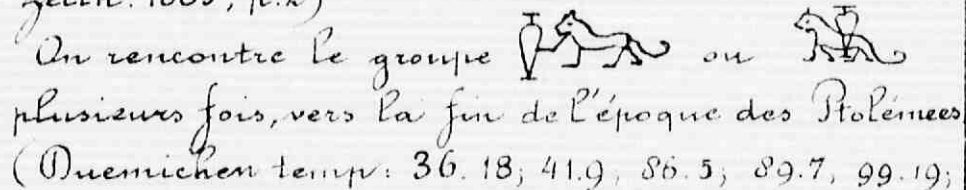 Zeitn. 1883, p.2)
On rencontre le groupe ou
plusieurs fois, vers la fin de l'époque des Ptolémées
(Duemichen temp: 36.18; 41.9, 86.5; 89.7, 99.19;